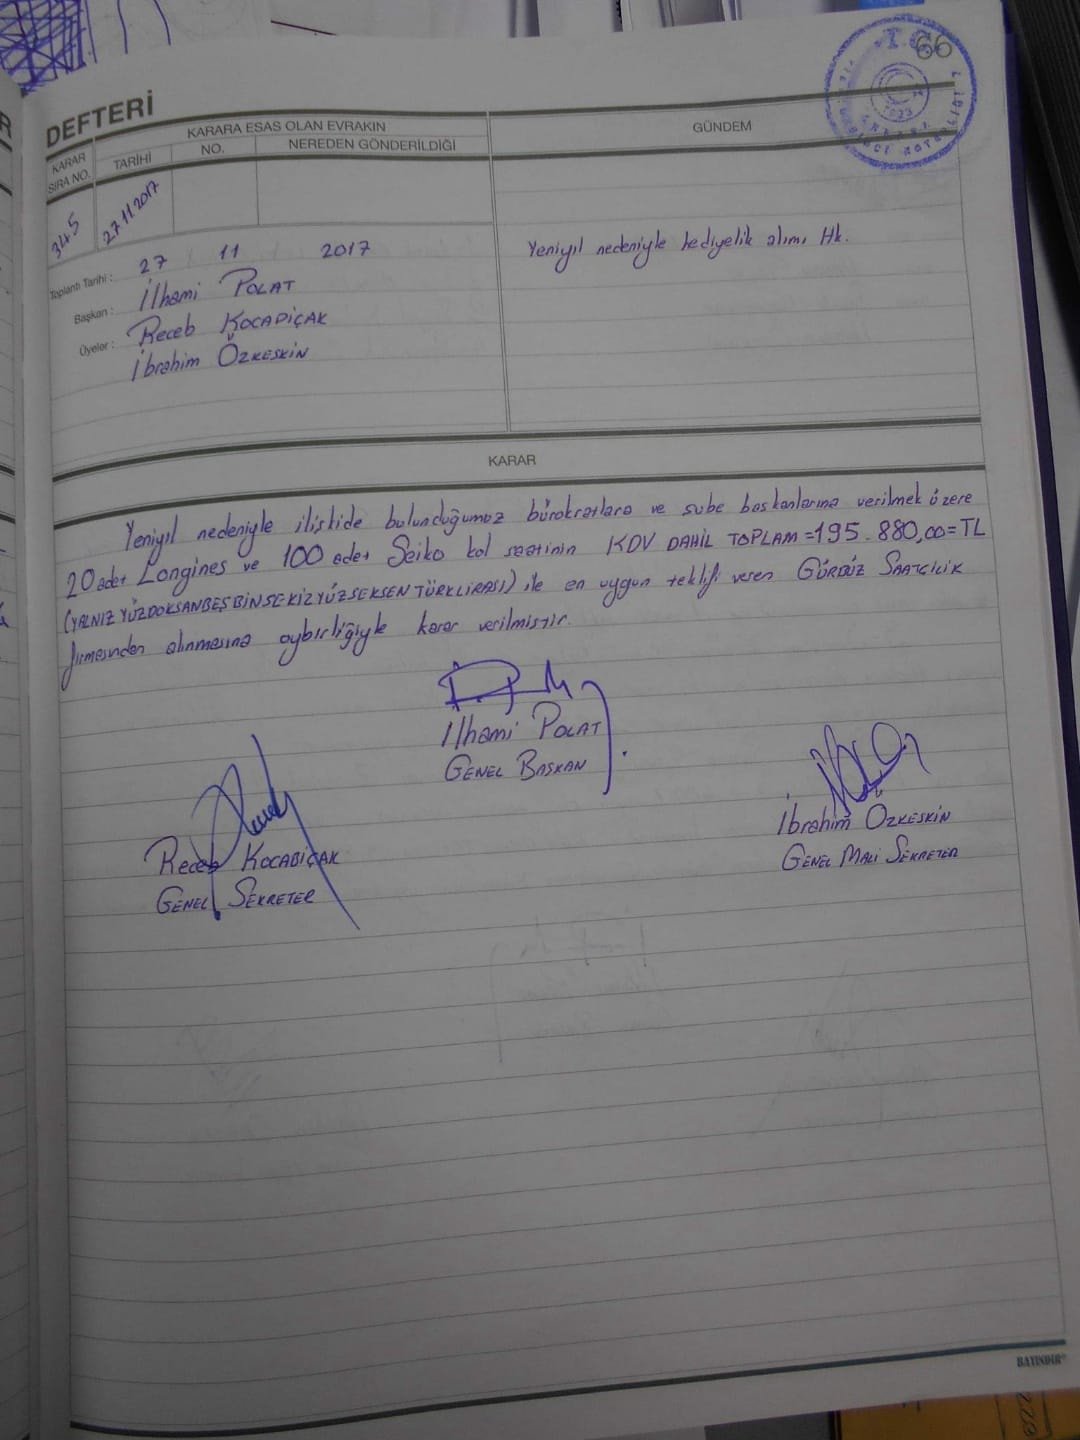 66
T.C.
DEFTERİ
KARARA ESAS OLAN EVRAKIN
GÜNDEM
KARAR SIRA NO.
TARİHİ
NO.
NEREDEN GÖNDERİLDİĞİ
345
27.11.2017
Toplantı Tarihi : 27 / 11 / 2017
Başkan : İlhami POLAT
Üyeler : Receb KOCABIÇAK
İbrahim ÖZKESKİN
Yeniyıl nedeniyle hediyelik alımı Hk.
KARAR
Yeniyıl nedeniyle ilişkide bulunduğumuz bürokratlara ve şube başkanlarına verilmek üzere
20 adet Longines ve 100 adet Seiko kol saatinin KDV DAHİL TOPLAM =195.880,00=TL
(YALNIZ YÜZDOKSANBEŞBİNSEKİZYÜZSEKSEN TÜRKLİRASI) ile en uygun teklifi veren GÜRBÜZ SAATÇİLİK
firmasından alınmasına oybirliğiyle karar verilmiştir.
İlhami POLAT
GENEL BAŞKAN
Receb KOCABIÇAK
GENEL SEKRETER
İbrahim ÖZKESKİN
GENEL MALİ SEKRETER
BAYINDIR